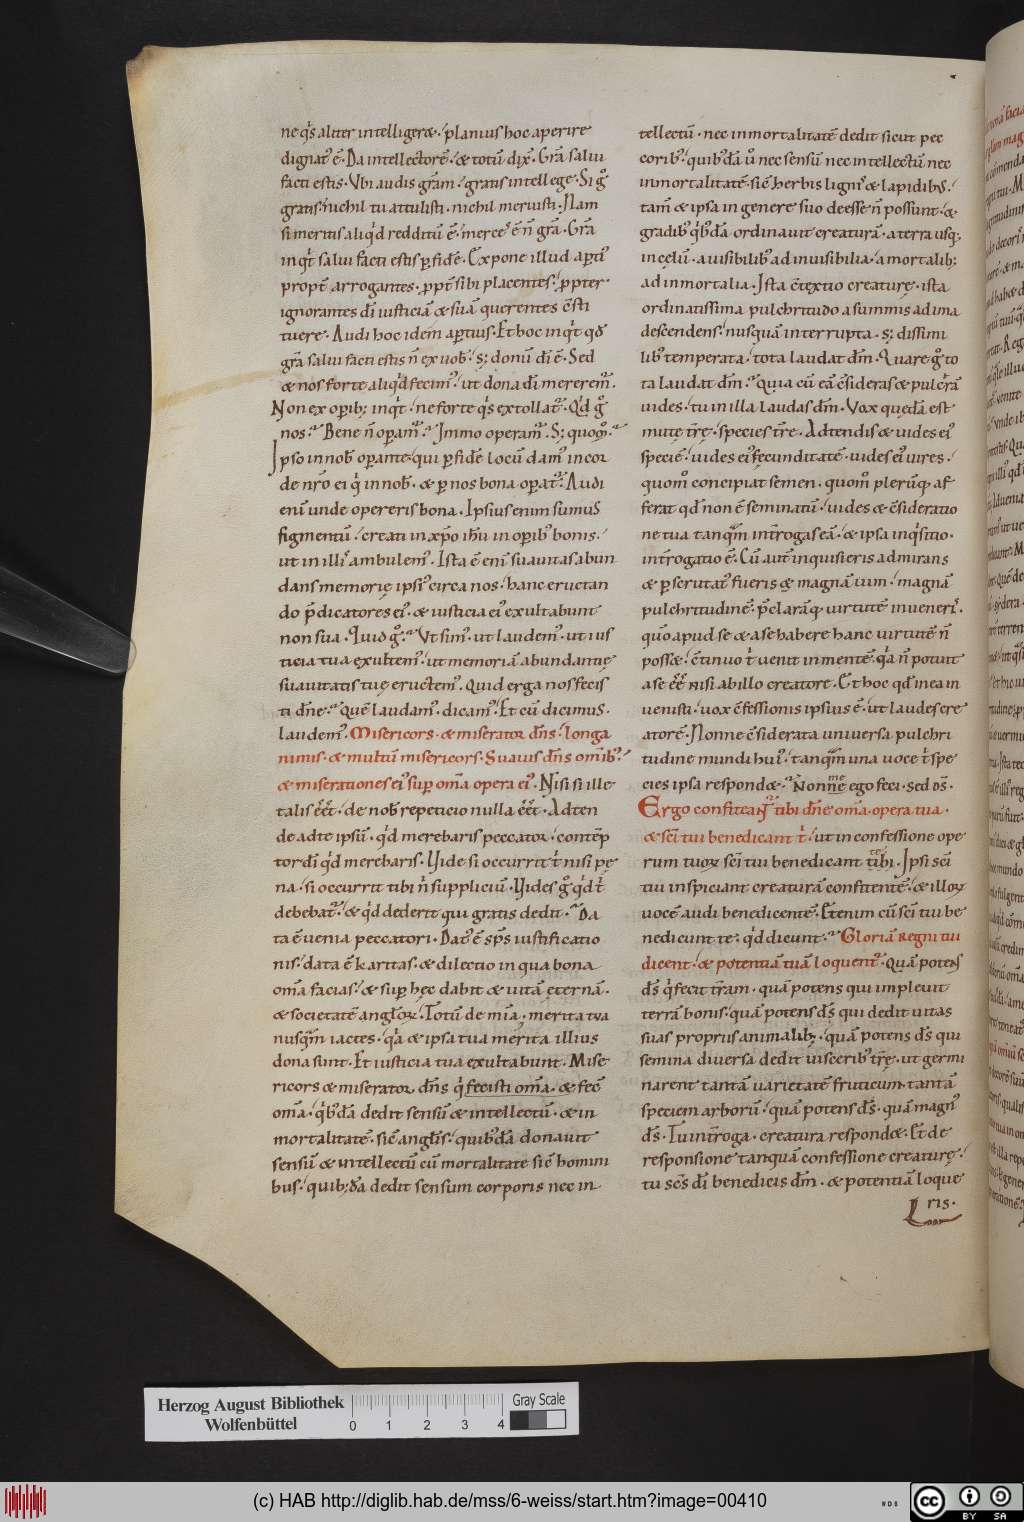 ne q̇s aliter intelligeræ. planius hoc aperire
dignat᷒ ē. Da intellectorē. & totū dix̄. Gr̄a salui
facti estis. Vbi audis gr̄am. gratis intellege. Si g̊
gratis. nichil tu attulisti. nichil meruisti. Nam
si meritis aliq̇d redditū ē. merces ē n̄ gr̄a. Gr̄a
inq̇t salui facti estis ꝑ fidē. Expone illud aꝑti᷒
propt̄ arrogantes. ꝓpt̄ sibi placentes. ꝓpter
ignorantes dī iusticiā & suā querentes c̄sti
tuere. Audi hoc idem aꝑtius. Et hoc inq̇t qđ
gr̄a salui facti estis n̄ ex uob᷒. s; donū dī ē. Sed
& nos forte aliq̇d fecim᷒. ut dona dī mererem᷒.
Non ex oꝑib; inq̇t. ne forte q̇s extollat᷒. Qđ g̊
nos. Bene n̄ oꝑam᷒. Immo operam᷒. S; quom̊.
Ipso in nob᷒ oꝑante. qui ꝑ fidē locū dam᷒ in cor
de nr̄o ei q̇ in nob᷒. & ꝑ nos bona oꝑat᷒. Audi
enī unde opereris bona. Ipsius enim sumus
figmentū. creati in xp̄o ih̄u in oꝑib᷒ bonis.
ut in illis ambulem᷒. Ista ē enī suauitas abun
dans memorię ipsi᷒ circa nos. hanc eructan
do p̄dicatores ei᷒. & iusticia ei᷒ exultabunt
non sua. Quid g̊. Vt sim᷒. ut laudem᷒. ut ius
ticia tua exultem᷒. ut memoriā abundantię
suauitatis tuę eructem᷒. Quid erga nos fecis
ti dn̄e. Quē laudam᷒. dicam᷒. Et cū dicimus.
laudem᷒. Misericors. & miserator dn̄s. longa
nimis. & multū misericors. Suauis dn̄s om̄ib᷒.
& miserationes ei᷒ suꝑ om̄a opera ei᷒. Nisi si ille
talis ēēt. de nob᷒ repeticio nulla ēēt. Adten
de ad te ipsū. q̇d merebaris peccator. contēp
tor dī q̇d merebaris. Vide si occurrit t̄ nisi pę
na. si occurrit tibi n̄ suppliciū. Vides g̊ q̇d t̄
debebat᷒. & q̇d dederit qui gratis dedit. Da
ta ē uenia peccatori. Dat᷒ ē sp̄s iustificatio
nis. data ē karitas. & dilectio in qua bona
om̄a facias. & suꝑ hęc dabit & uitā ęternā.
& societatē angl̄oꝝ. Totū de mīa. merita tua
nusq̄m iactes. q̇a & ipsa tua merita illius
dona sunt. Et iusticia tua exultabunt. Mise
ricors & miserator dn̄s q̇ fecisti om̄a. & fec̄
om̄a. q̇b᷒dā dedit sensū & intellectū. & in
mortalitatē. sic̄ angl̄is. quib᷒dā donauit
sensū & intellectū cū mortalitate sic̄ homini
bus. quib;dā dedit sensum corporis nec in
tellectū. nec inmortalitatē dedit sicut pec
corib᷒. quib᷒dā ů nec sensū nec intellectū nec
inmortalitatē. sic̄ herbis lignis & lapidib᷒.
tam̄ & ipsa in genere suo deesse n̄ possunt. &
gradib᷒ q̇b᷒dā ordinauit creaturā. a terra usq;
in celū. a uisibilib᷒ ad inuisibilia. a mortalib;
ad inmortalia. Ista c̄textio creaturę. ista
ordinatissima pulchritudo a summis ad ima
descendens. nusquā interrupta. s; dissimi
lib᷒ temperata. tota laudat dm̄. Quare g̊ to
ta laudat dm̄. Quia cū eā c̄sideras & pulcr̄ā
uides. tu in illa laudas dm̄. Vox quędā est
mutę tr̄ę. species tr̄ę. Adtendis & uides ei᷒
speciē. uides ei᷒ fecunditatē. uides ei᷒ uires.
quom̊ concipiat semen. quom̊ plerūq; af
ferat qđ non ē seminatū. uides & c̄sideratio
ne tua tanq̄m int̄rogas eā. & ipsa inq̇sitio.
int̄rogatio ē. Cū aut̄ inquisieris admirans
& ꝑscrutat᷒ fueris & magnā uim. magnā
pulchritudinē. p̄clarāq; uirtutē inueneris.
qm̄ apud se & a se habere hanc uirtutē n̄
possæ. c̄tinuo t̄ uenit in mentē. q̇a n̄ potuit
a se ēē nisi ab illo creatore. Et hoc qđ in ea in
uenisti. uox c̄fessionis ipsius ē. ut laudes cre
atorē. Nonne c̄siderata uniuersa pulchri
tudine mundi hui᷒. tanq̄m una uoce t̄ spe
cies ipsa respondæ. Nonne me ego feci. sed ds̄.
Ergo confiteant᷒ tibi dn̄e om̄a opera tua.
& sc̄i tui benedicant t̄. ut in confessione ope
rum tuoꝝ sc̄i tui benedicant tibi. Ipsi sc̄i
tui inspiciant creaturā confitentē. & illoꝝ
uocē audi benedicentē. Etenim cū sc̄i tui be
nedicunt te. q̇d dicunt. Gloriā regni tui
dicent. & potentiā tuā loquent᷒. Quā potens
ds̄ q̇ fecit tr̄am. quā potens qui impleuit
terrā bonis. quā potens ds̄ qui dedit uitas
suas propriis animalib;. quā potens ds̄ qui
semina diuersa dedit uiscerib᷒ tr̄ę. ut germi
narent tantā uarietatē fruticum. tantā
speciem arborū. quā potens ds̄. quā magn᷒
ds̄. Tu int̄roga. creatura respondæ. Et de
responsione tanquā confessione creaturę.
tu sc̄s dī benedicis dm̄. & potentiā loque
ris.
Herzog August Bibliothek
Wolfenbüttel
0 1 2 3 4
Gray Scale
(c) HAB http://diglib.hab.de/mss/6-weiss/start.htm?image=00410
BY SA